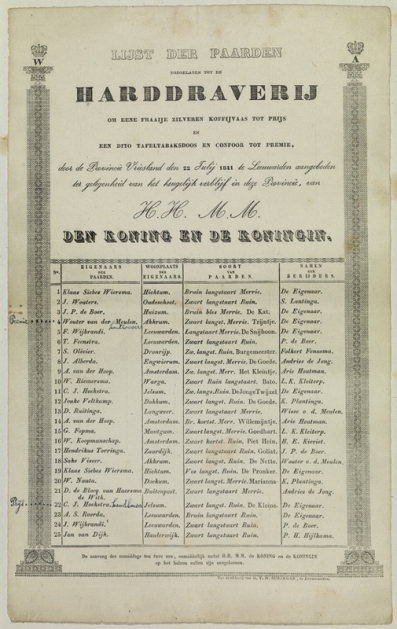 W A
LIJST DER PAARDEN
TOEGELATEN TOT DE
HARDDRAVERIJ
OM EENE FRAAIJE ZILVEREN KOFFIJVAAS TOT PRIJS
EN
EEN DITO TAFELTABAKSDOOS EN CONFOOR TOT PREMIE,
door de Provincie Vriesland den 22 Julij 1841 te Leeuwarden aangeboden
ter gelegenheid van het verblijf in deze Provincie, van
H.H. M.M.
DEN KONING EN DE KONINGIN.
No. EIGENAARS DER PAARDEN. WOONPLAATS DER EIGENAARS. SOORT VAN PAARDEN. NAMEN DER BERIJDERS.
1 Klaas Siebes Wiersma. Hichtum. Bruin langstaart Merrie. De Eigenaar.
2 J. Wouters. Oudeschoot. Zwart langstaart Ruin. S. Lantinga.
3 J. P. de Boer. Huizum. Bruin bles Merrie, De Kat. De Eigenaar.
Premie 4 Wouter van der Meulen. Akkrum. Zwart langst. Merrie, Trijntje. De Eigenaar.
5 F. Wijbrandi. Leeuwarden. Langstaart Merrie, De Snijboon. De Eigenaar.
6 T. Feenstra. Leeuwarden. Zwart langstaart Ruin. P. de Boer.
7 S. Olivier. Dronrijp. Zw. langst. Ruin, Burgemeester. Folkert Fenusma.
8 J. Alberda. Engwierum. Zwart langst. Merrie, De Goede. Andries de Jong.
9 A. van der Hoep. Amsterdam. Zw. langst. Merr. Het Kleintje. Aris Houtman.
10 W. Riemersma. Warga. Zwart Ruin langstaart, Bato. L. K. Kleiterp.
11 C. J. Hoekstra. Jelsum. Zw. langs. Ruin, De Jonge Twijzel. De Eigenaar.
12 Imke Veltkamp. Dokkum. Zwart langst. Ruin, De Goede. K. Plantinga.
13 D. Ruitinga. Langweer. Zwart langstaart Merrie. Wisse v. d. Meulen.
14 A. van der Hoep. Amsterdam. Br. kortst. Merr. Willemijntje. Aris Houtman.
15 G. Fopma. Mantgum. Zwart langst. Merrie, Goedhart. L. K. Kleiterp.
16 W. Koopmanschap. Amsterdam. Zwart kortst. Ruin, Piet Hein. H. E. Kiewiet.
17 Hendrikus Terringa. Zuurdijk. Zwart langstaart Ruin, Goliat. J. P. de Boer.
18 Sake Visser. Akkrum. Zwart langstaart Ruin, De Netta. Wouter v. d. Meulen.
19 Klaas Siebes Wiersma. Hichtum. Vos langst. Ruin, De Pronker. De Eigenaar.
20 W. Nauta. Dockum. Zwart langst. Merrie, Marianna. K. Plantinga.
21 D. de Blocq van Haersma de With. Buitenpost. Zwart langstaart Merrie. Andries de Jong.
Prijs 22 C. J. Hoekstra. Jelsum. Zwart langstaart Ruin, De Kleine. De Eigenaar.
23 A. S. Roorda. Leeuwarden. Bruin langstaart Ruin. De Eigenaar.
24 J. Wijbrandi. Leeuwarden. Zwart langstaart Ruin. P. de Boer.
25 Jan van Dijk. Harderwijk. Zwart langstaart Ruin. P. H. Hijlkema.
De aanvang des namiddags ten twee ure, onmiddellijk nadat H.H. M.M. de KONING en de KONINGIN
op het balcon zullen zijn aangekomen.